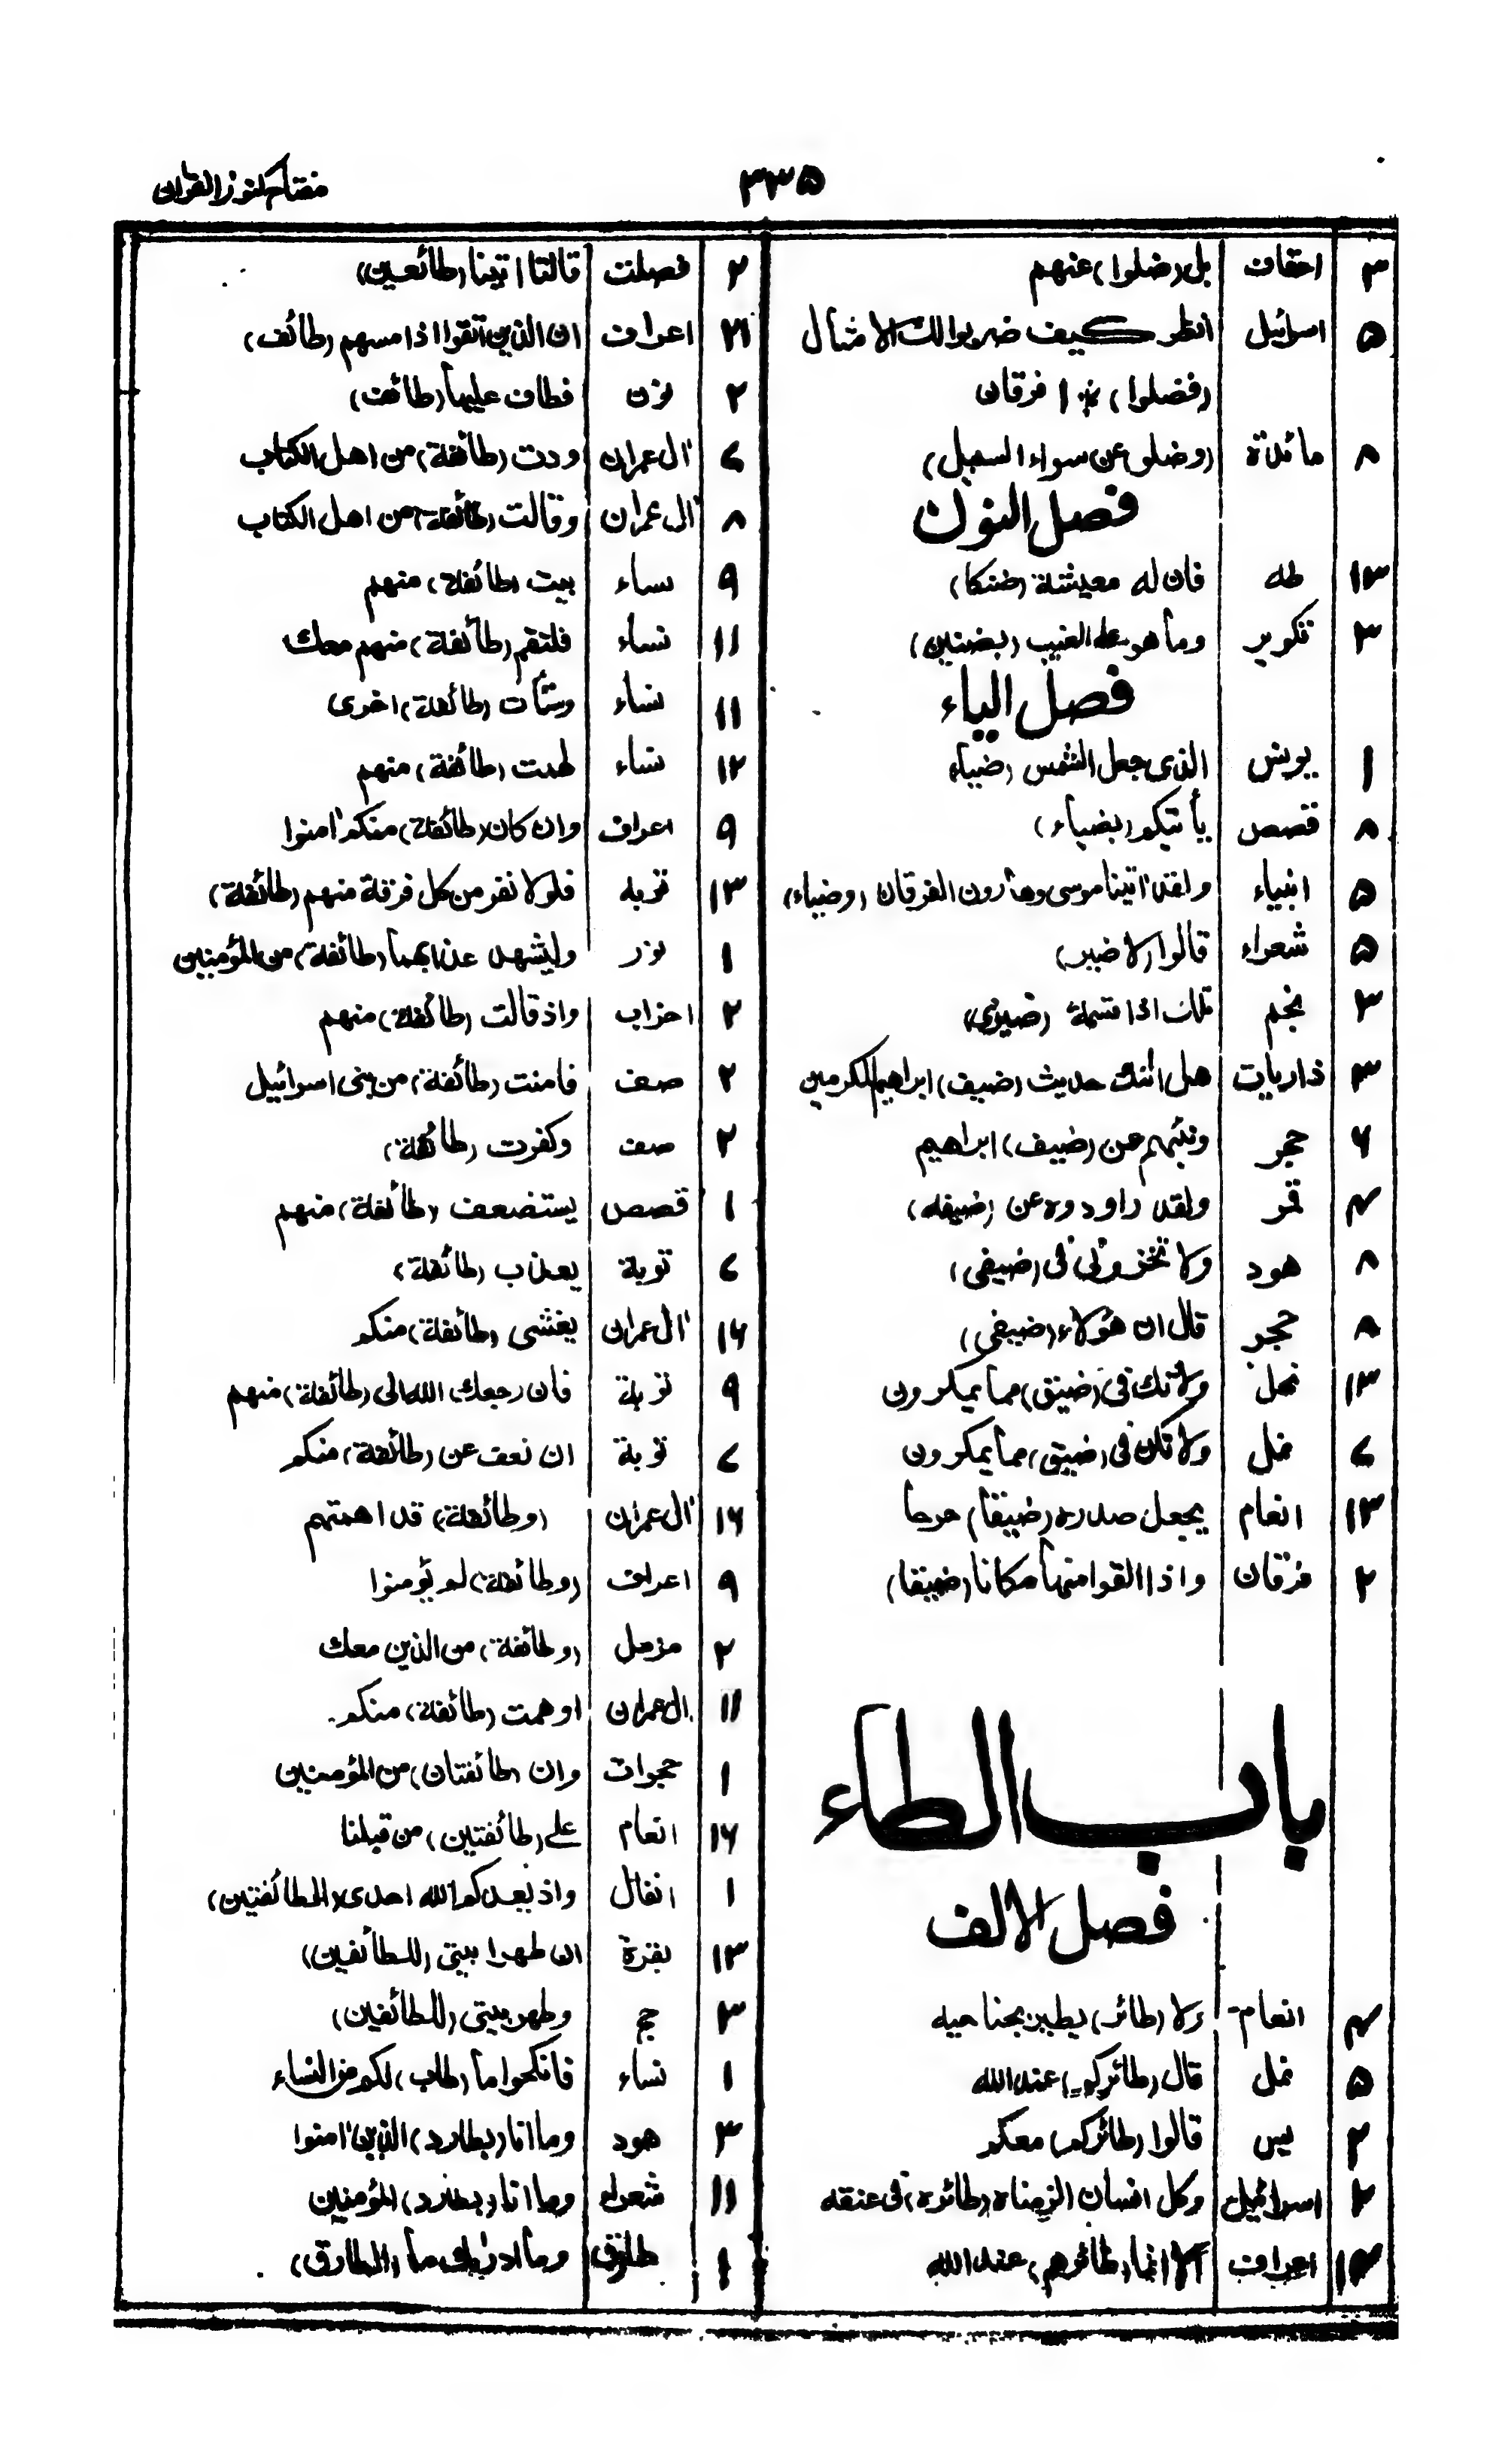 مفتاح كنوز القران
۳۳۵
۳ احقاف بل (ضلوا) عنهم
۵ اسرائيل انظر كيف ضربوا لك الامثال
(فضلوا) ۞ ۱ فرقان
۸ مائدة (وضلوا عن سواء السبيل)
فصل النون
۱۳ طه فان له معيشة (ضنكا)
۳ تكوير وما هو على الغيب (بضنين)
فصل الياء
۱ يونس الذى جعل الشمس (ضياء
۸ قصص يأتيكم (بضياء)
۵ انبياء ولقد اتينا موسى وهارون الفرقان (وضياء)
۵ شعراء قالوا (لا ضير)
۳ نجم تلك اذا قسمة (ضيزى)
۳ ذاريات هل اتٰك حديث (ضيف) ابراهيم المكرمين
۶ حجر ونبئهم عن (ضيف) ابراهيم
۴ قمر ولقد راودوه عن (ضيفه)
۸ هود ولا تخزونى فى (ضيفى)
۸ حجر قال ان هؤلاء (ضيفى)
۱۳ نحل ولا تك فى (ضيق) مما يمكرون
۷ نمل ولا تكن فى (ضيق) مما يمكرون
۱۳ انعام يجعل صدره (ضيقا) حرجا
۲ فرقان واذا القوا منها مكانا (ضيقا)
باب الطاء
فصل الالف
۴ انعام ولا (طائر) يطير بجناحيه
۵ نمل قال (طائركم) عند الله
۲ يس قالوا (طائركم) معكم
۲ اسرائيل وكل انسان الزمناه (طائره) فى عنقه
۱۳ اعراف الا انما (طائرهم) عند الله
۲ فصلت قالتا اتينا (طائعين)
۲۱ اعراف ان الذين اتقوا اذا مسهم (طائف)
۲ نون فطاف عليها (طائف)
۷ اٰل عمران ودت (طائفة) من اهل الكتاب
۸ اٰل عمران وقالت (طائفة) من اهل الكتاب
۹ نساء بيت (طائفة) منهم
۱۱ نساء فلتقم (طائفة) منهم معك
۱۱ نساء ولتأت (طائفة) اخرى
۱۲ نساء لهمت (طائفة) منهم
۹ اعراف وان كان (طائفة) منكم اٰمنوا
۱۳ توبه فلولا نفر من كل فرقة منهم (طائفة)
۱ نور وليشهد عذابهما (طائفة) من المؤمنين
۲ احزاب واذ قالت (طائفة) منهم
۲ صف فامنت (طائفة) من بنى اسرائيل
۲ صف وكفرت (طائفة)
۱ قصص يستضعف (طائفة) منهم
۷ توبة يعذب (طائفة)
۱۶ اٰل عمران يغشى (طائفة) منكم
۹ توبة فان رجعك الله الى (طائفة) منهم
۷ توبة ان نعف عن (طائفة) منكم
۱۶ اٰل عمران (وطائفة) قد اهمتهم
۹ اعراف (وطائفة) لم يؤمنوا
۲ مزمل (وطائفة) من الذين معك
۱۱ ال عمران اوهمت (طائفة) منكم
۱ حجرات وان (طائفتان) من المؤمنين
۱۶ انعام على (طائفتين) من قبلنا
۱ انفال واذ يعدكم الله احدى (الطائفتين)
۱۳ بقرة ان طهرا بيتى (للطائفين)
۳ حج وطهر بيتى (للطائفين)
۱ نساء فانكحوا ما (طاب) لكم من النساء
۳ هود وما انا (بطارد) الذين اٰمنوا
۱۱ شعراء وما انا (بطارد) المؤمنين
۱ طارق وما ادرٰك ما (الطارق)